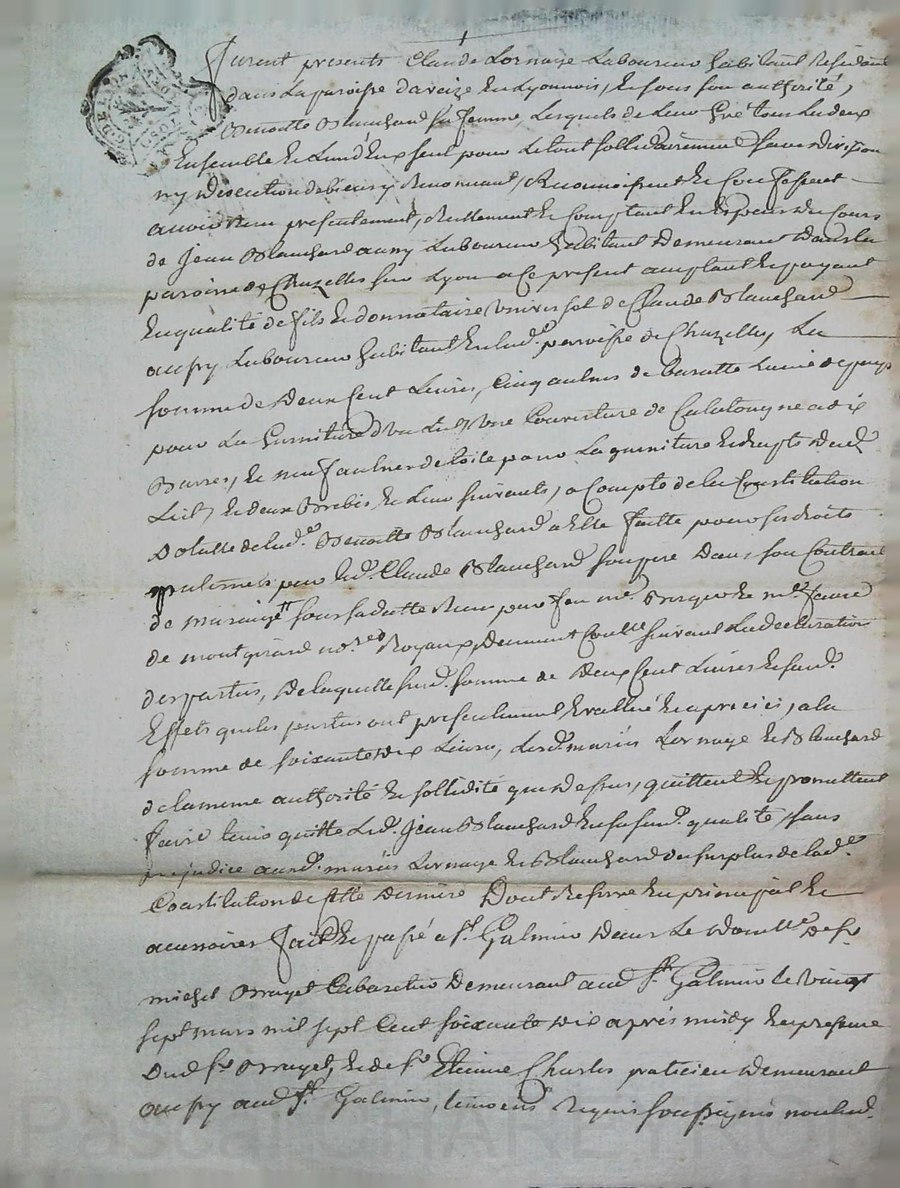 furent presents Claude Lornage Laboureur habitant Residant
dans La paroisse d'aveize en Lyonnois, et sous son authorité,
Benoitte Blanchard sa femme, Lesquels de Leur gré tous Les deux
Ensemble et Lun d'Eux seul pour Le tout sollidairement sans division
ny discution de biens y Renonçant, Reconnoissent et Confessent
avoir Reçu presentement, Reellement et Comptant en Especes du Cours
de Jean Blanchard aussy Laboureur habitant Demeurant dans la
paroisse de Chazelles sur Lyon a ce present acceptant et payant
En qualité de fils et donnataire universel de Claude Blanchard
aussy Laboureur habitant en lad.e parroisse de Chazelles, La
somme de Deux Cent Livres, Cinq aulnes de
pour La garniture d'un Lit Une Couverture de Catalougne a dix
Barres, et neuf aulnes de toile pour La garniture et dud.
Lit, et deux Brebis et Leur suivants, a Compte de la Constitution
Dotalle de lad.e Benoitte Blanchard a Elle faitte pour ses droits
paternels par led. Claude Blanchard son pere Dans son Contract
de mariage sous sa datte Reçu par feu me. et me. faure
de montgirard no.res Royaux Dûement Conllé suivant La declaration
des parties, De laquelle susd. somme de Deux Cent Livres et susd.
Effets que les parties ont presentement Evallué et apreciés, a la
somme de soixante dix Livres, Lesd. mariés Lornage et Blanchard
de la meme authorité et sollidité que dessus, quittent et promettent
faire tenir quitte Led. Jean Blanchard en sa susd. qualité, sans
prejudice auxd. mariés Lornage et Blanchard du surplus de lad.e
Constitution de cette Derniere Dont Reserve en principal et
accessoires fait et passé a St. Galmier Dans Le Domille de sr.
michel Brayet Cabaretier Demeurant aud. St. Galmier le vingt
sept mars mil sept Cent soixante dix après midy En presence
Dud. sr. Brayet, et de sr. Etienne Charles praticien Demeurant
aussy aud. St. Galmier, temoins Requis soussignés non led.